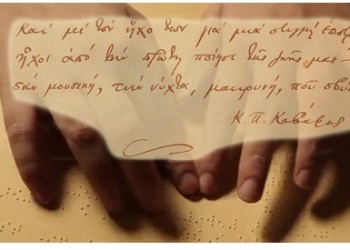 Και με τον ήχο των για μια στιγμή επισ
ήχοι από την πρώτη ποίησι της ζωής μας —
σαν μουσική, την νύχτα, μακρυνή, που σβύ
Κ. Π. Καβάφης